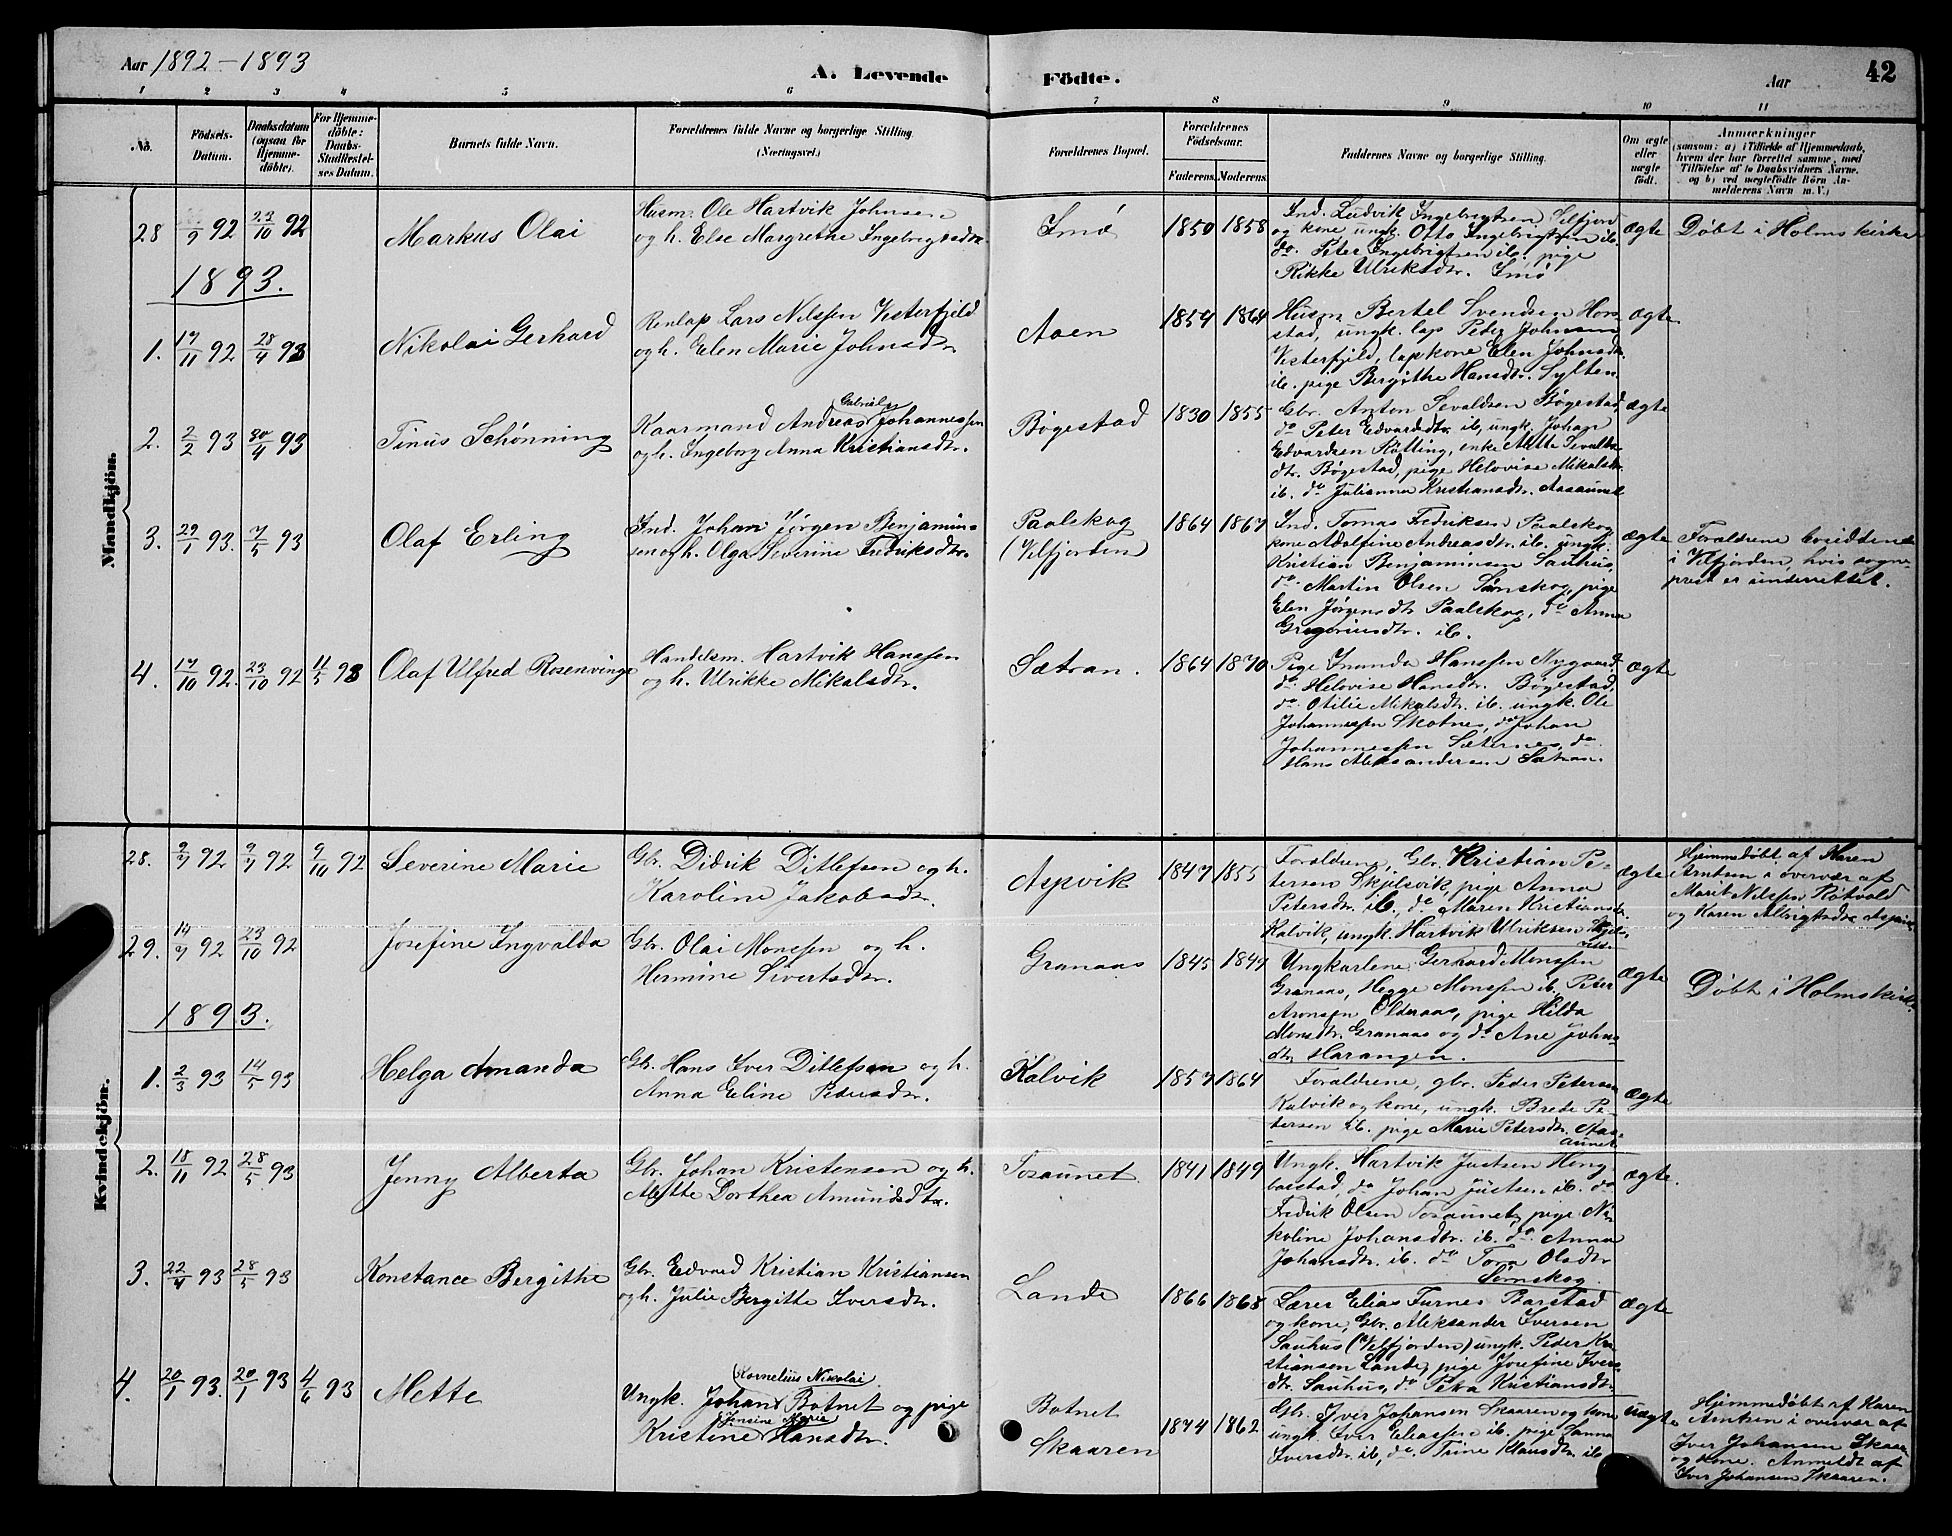 Aar 1892-1893
A. Levende Födte.
Aar
42
1 2 3 4 5 6 7 8 9 10 11
No.
Födsels-Datum.
Daabsdatum (ogsaa for Hjemme-döbte).
For Hjemme-döbte: Daabs-Stadfæstel-ses Datum.
Barnets fulde Navn.
Forældrenes fulde Navne og borgerlige Stilling (Næringsvei.)
Forældrenes Bopæl.
Forældrenes Födselsaar.
Faderens. Moderens.
Faddernes Navne og borgerlige Stilling.
Om ægte eller uægte födt.
Anmærkninger
(saasom: a) i Tilfælde af Hjemmedaab, hvem der har forrettet samme, med Tilföielse af to Daabsvidners Navne, og b) ved uægtefödte Börn An-melderens Navn m. V.)
Mandkjön.
28 /9 92 23/10 92 Markus Olai
Husm. Ole Hartvik Johnsen
og h. Else Margrethe Ingebrigtsdtr
1850 1858
Ind. Ludvik Ingebrigtsen Velfjord
og kone ungk. Otto Ingebrigtsen ib.
do. Peter Ingebrigtsen ib. pige
Rikke Ulriksdtr.
Ægte
Døbt i Holms kirke
1893.
1. 17/11 92 28/4 93 Nikolai Gerhard
Renlap Lars Nilssen Vesterfjeld
og h. Elen Marie Johnsdtr
Aaen
1854 1864
Husm. Bertel Svendsen Hon-
stad, ungk. lap Peder Johnsen
Vesterfjeld, lapkone Elen Johnsdtr.
ib. pige Bergithe Hansdtr. Sylten.
Ægte
2. 2/2 93 30/4 93 Tinus Schønning
Gabriel
Kaarmand Andreas Johannessen
og h. Ingeborg Anna Kristiansdtr.
Bøgestad
1830 1855
Gbr. Anton Sevaldsen Bøgestad,
do Peter Edvardsdtr. ib, ungk. Johan
Edvardsen Kølling, enke Mette Sevalds-
dtr. Bøgestad, pige Helovise Mikalsdtr.
ib. do Julianna Kristiansdtr. Aasaunet
Ægte
3. 29/1 93. 7/5 93 Olaf Erling
Ind. Johan Jørgen Benjamin-
sen og h. Olga Severine Fredriksdtr.
Paalskog
(Velfjorden)
1864 1867
Ind. Tomas Fredriksen Paalskog
kone Adolfine Andreasdtr. ib. ungk.
Kristian Benjaminsen Sauhus,
do Martin Olsen Sømskog, pige
Elen Jørgensdtr Paalskog, do Anna
Gregoriusdtr. ib.
Ægte
Forældrene bosiddende
i Velfjorden, hvis sogne-
prest er underrettet.
4. 17/10 92. 23/10 92 11/5 93 Olaf Ulfred Rosenvinge
Handelsm. Hartvik Hanssen
og h. Ulrikke Mikalsdtr.
Sætran.
1864 1870
Pige Hanssen Nygaard
do. Helovise Hansdtr. Bøgestad,
do. Otilie Mikalsdtr. ib. ungk. Ole
Johannessen Skotnes, do Johan
Johannessen Sæternes, do.
Hans Aleksandersen Sætran.
Ægte
Kvindekjön.
28. 9/7 92 9/7 92 9/10 92 Severine Marie
Gbr. Didrik Ditlefsen og h.
Karoline Jakobsdtr.
Aspvik
1847 1855
Forældrene, Gbr. Kristian Pe-
tersen Skjelsvik, pige Anna
Petersdtr. ib, do Maren Kristiansdtr.
Kalvik, ungk. Hartvik Ulriksen
Ægte
Hjemmedøbt af Karen
Arntsen i overvær af
Marit Nilssen Røtvold
og Karen Albrigtsdtr Aspvik
29. 14/7 92 23/10 92 Josefine Ingvalda
Gbr. Olai Monssen og h.
Hermine Sivertsdtr.
Granaas
1845 1847
Ungkarlene Gerhard Monssen
Granaas, Hegge Monssen ib, Peter
Aronsen Olderaas, pige Hilda
Monsdtr. Granaas og do Ane Johns-
dtr Harangen.
Ægte
Døbt i Holms kirke
1893.
1. 2/3 93 14/5 93 Helga Amanda
Gbr. Hans Iver Ditlefsen og h.
Anna Eline Pedersdtr.
Kalvik
1857 1864
Forældrene, gbr. Peder Petersen
Kalvik og kone, ungk. Brede Pe-
tersen ib. pige Marie Petersdtr. Aas-
aunet
Ægte
2. 18/11 92 28/5 93 Jenny Alberta
Gbr. Johan Kristensen og h.
Mette Dorthea Amundsdtr.
Tosaunet
1841 1849
Ungk. Hartvik Justsen Heng-
bastad, do Johan Justsen ib. do
Fredrik Olsen Tosaunet, pige Ni-
koline Johansdtr. ib. do Anna
Johansdtr. ib. do Tora Olsdtr
Sømskog.
Ægte.
3. 22/4 93 28/5 93 Konstance Bergithe
Gbr. Edvard Kristian Kristiansen
og h. Julie Bergitte Iversdtr.
Lande
1866 1868
Lærer Elias Furnes Barstad
og kone, Gbr. Aleksander Iversen
Sauhus (Velfjorden) ungk. Peder Kri-
stiansen Lande, pige Josefine Ivers-
dtr. Sauhus, do Petra Kristiansdtr.
Ægte
4. 20/1 93. 20/1 93 4/6 93 Mette
Kornelius Nikolai
Ungk. Johan Botnet og pige
Jensine Marie
Kristine Hansdtr.
Botnet
Skaaren
1844 1862
Gbr. Iver Johansen Skaaren og kone
ungk. Iver Eliassen ib. pige Sanna
Iversdtr. ib, do Trine Klausdtr. ib
uægte
Hjemmedøbt af Karen
Arntsen i overvær af
Iver Johansen Skaaren
og kone. Anmeldt af
Iver Johansen Skaaren.